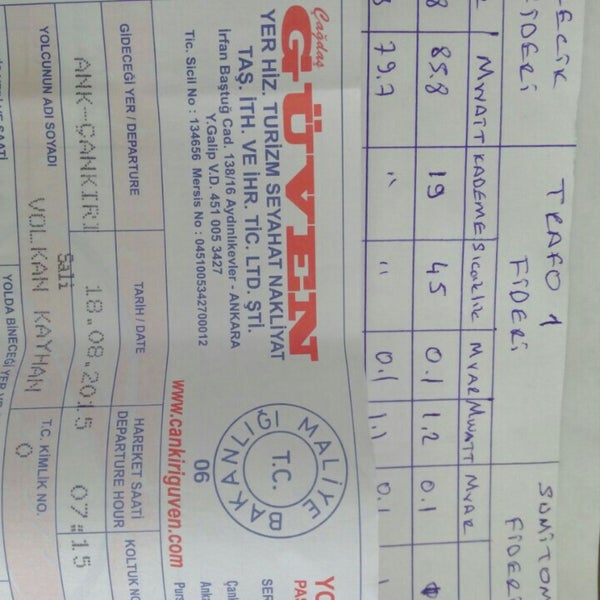 Çağdaş
GÜVEN
YER HİZ. TURİZM SEYAHAT NAKLİYAT
TAŞ. İTH. VE İHR. TİC. LTD. ŞTİ.
İrfan Baştuğ Cad. 138/16 Aydınlıkevler - ANKARA
Y.Galip V.D. 451 005 3427
Tic. Sicil No : 134656 Mersis No : 0451005342700012
www.cankiriguven.com
MALİYE BAKANLIĞI
T.C.
06
GİDECEĞİ YER / DEPARTURE
TARİH / DATE
HAREKET SAATİ
DEPARTURE HOUR
KOLTUK NO
ANK-ÇANKIRI
18.08.2015
07:15
Salı
YOLCUNUN ADI SOYADI
VOLKAN KAYHAN
T.C. KİMLİK NO.
0
YOLDA BİNECEĞİ YER
TRAFO 1
FİDERİ
FİDERİ
FİDERİ
MWATT KADEME SICAKLIK MVAR MWATT MVAR
85.8 19 45 0.1 1.2 0.1
79.7 " " 0.1 1.1 0.1